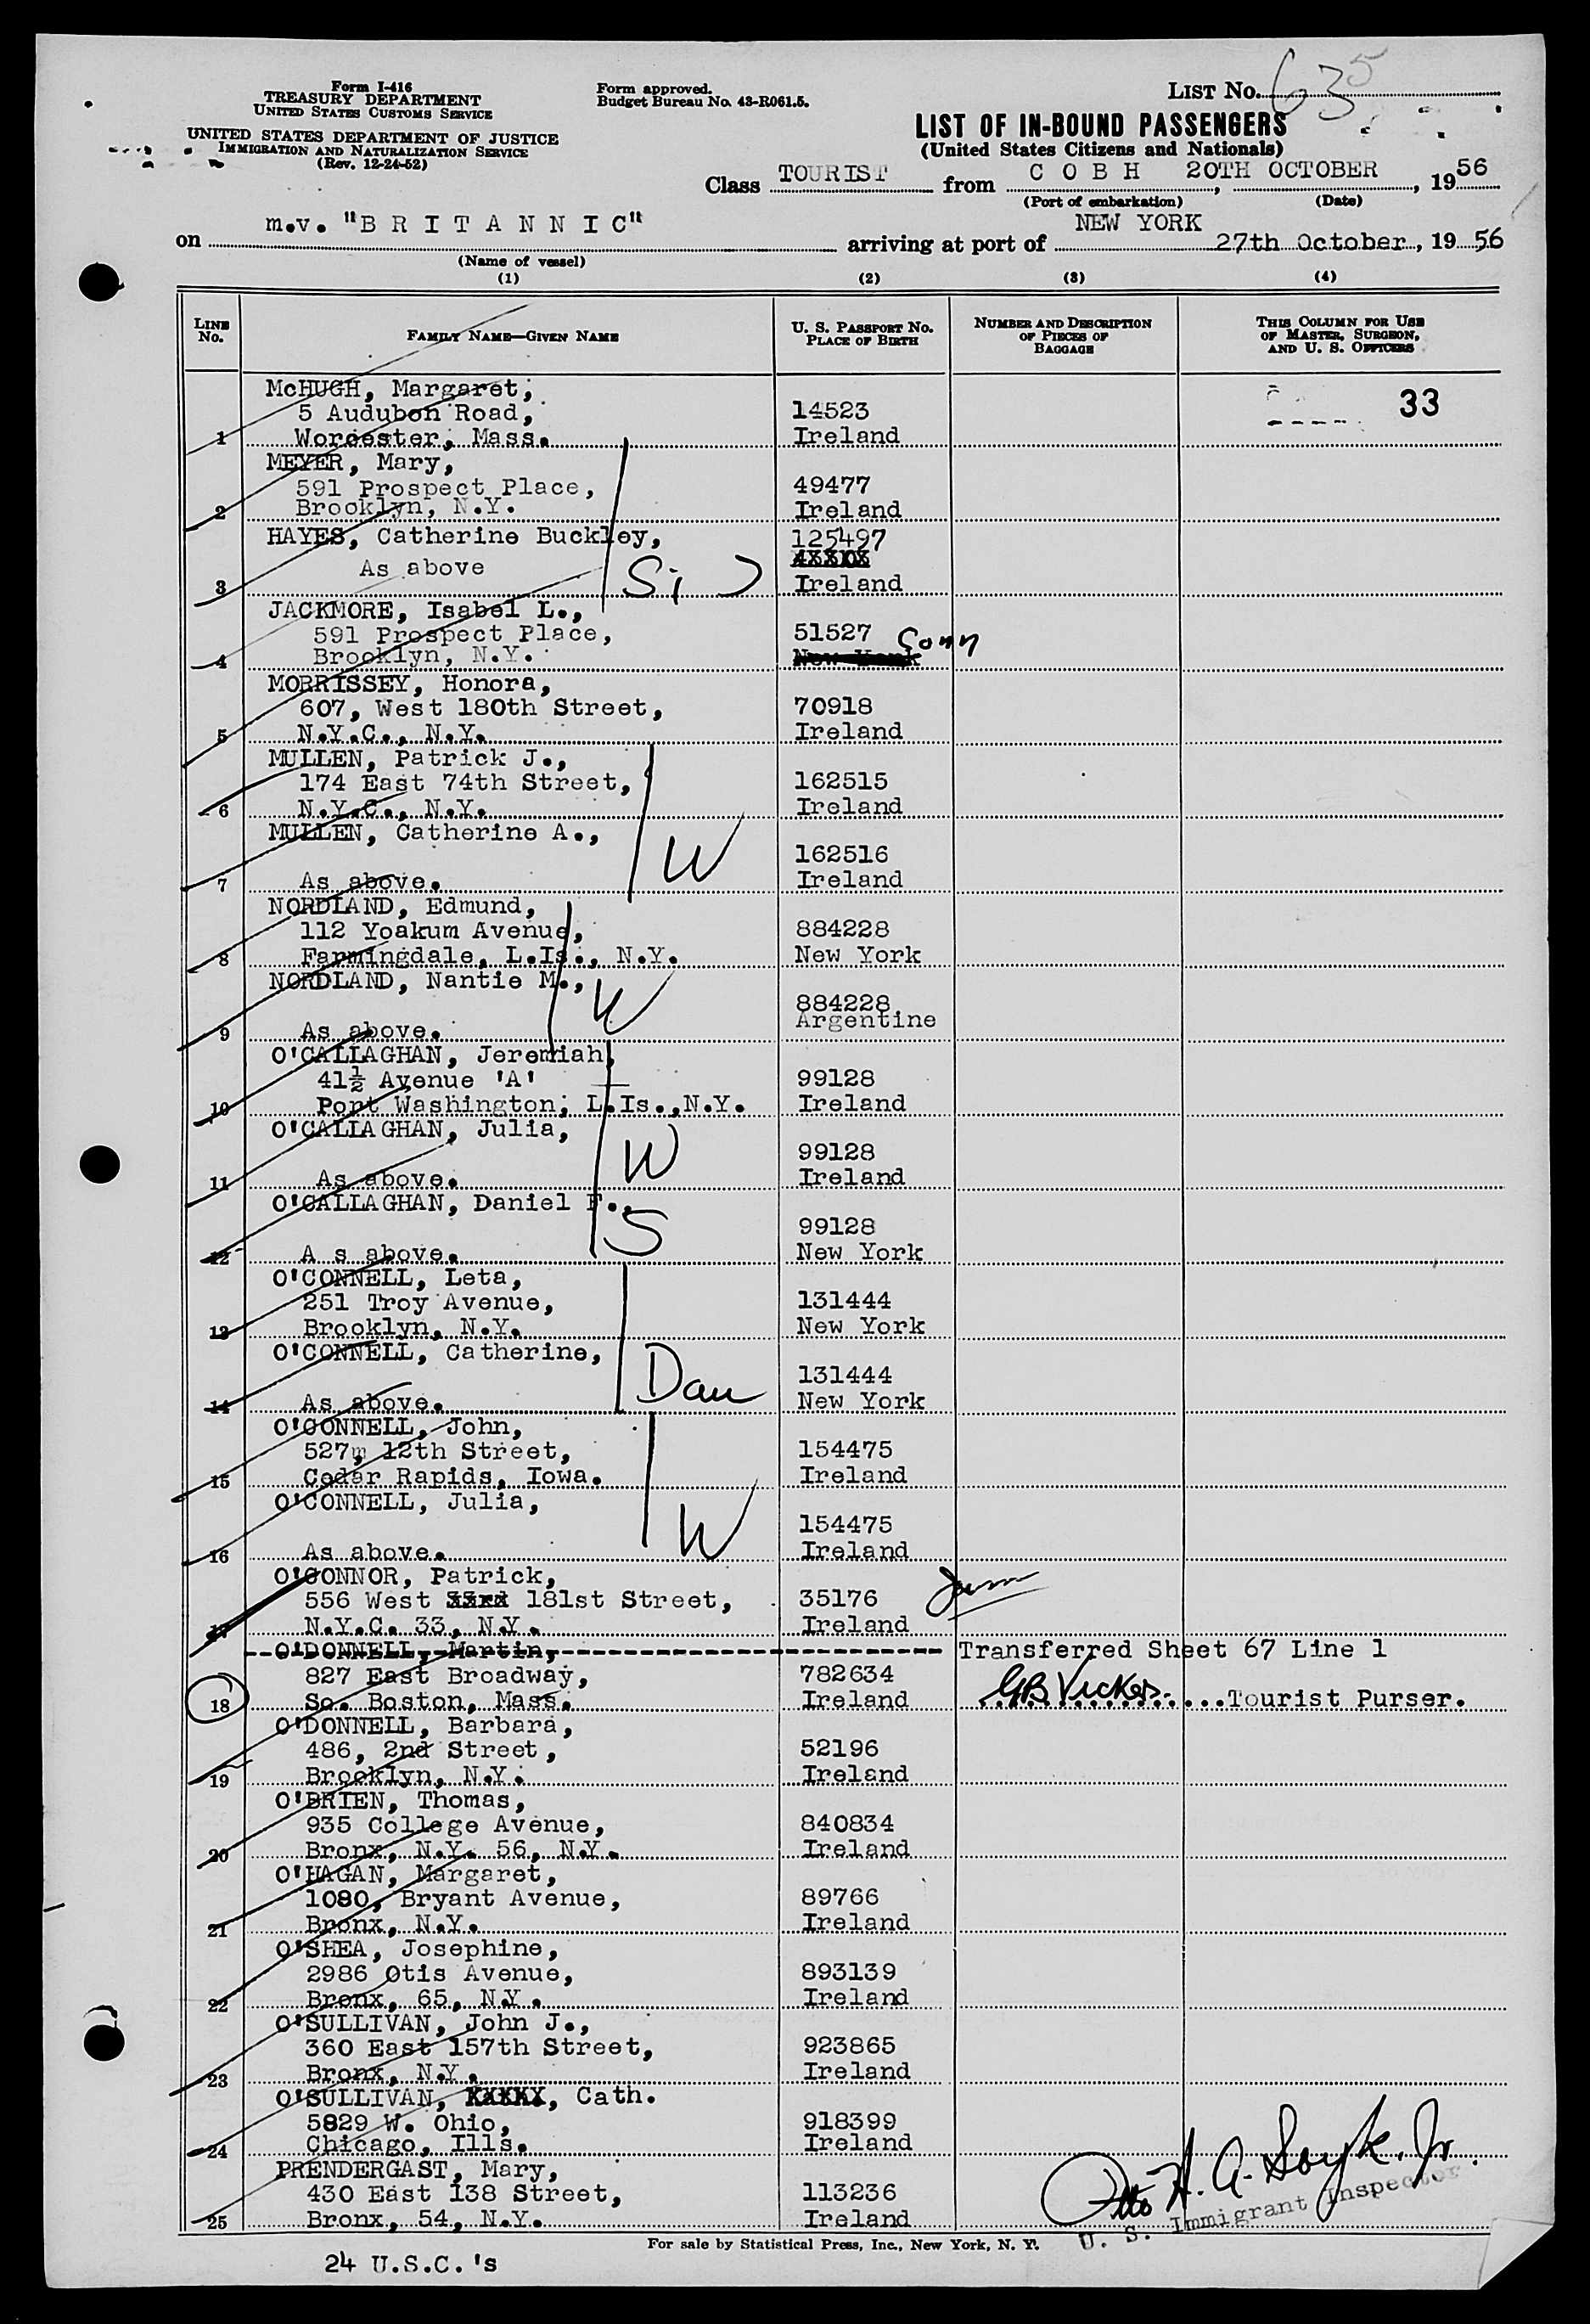 Form I-416
TREASURY DEPARTMENT
UNITED STATES CUSTOMS SERVICE
UNITED STATES DEPARTMENT OF JUSTICE
IMMIGRATION AND NATURALIZATION SERVICE
(Rev. 12-24-52)
Form approved.
Budget Bureau No. 43-R061.5.
LIST No. 635
LIST OF IN-BOUND PASSENGERS
(United States Citizens and Nationals)
Class TOURIST from C O B H, 20TH OCTOBER, 1956
(Port of embarkation) (Date)
on m.v. "B R I T A N N I C" arriving at port of NEW YORK 27th October, 1956
(Name of vessel)
(1) (2) (3) (4)
LINE No. FAMILY NAME—GIVEN NAME U. S. PASSPORT No. PLACE OF BIRTH NUMBER AND DESCRIPTION OF PIECES OF BAGGAGE THIS COLUMN FOR USE OF MASTER, SURGEON, AND U. S. OFFICERS
McHUGH, Margaret,
5 Audubon Road, 14523 33
1 Worcester, Mass. Ireland
MEYER, Mary,
591 Prospect Place, 49477
2 Brooklyn, N.Y. Ireland
HAYES, Catherine Buckley, 125497
As above
3 Si Ireland
JACKMORE, Isabel L.,
591 Prospect Place, 51527 Conn
4 Brooklyn, N.Y. New York
MORRISSEY, Honora,
607, West 180th Street, 70918
5 N.Y.C., N.Y. Ireland
MULLEN, Patrick J.,
174 East 74th Street, 162515
6 N.Y.C., N.Y. Ireland
MULLEN, Catherine A.,
W 162516
7 As above. Ireland
NORDLAND, Edmund,
112 Yoakum Avenue, 884228
8 Farmingdale, L.Is., N.Y. New York
NORDLAND, Nantie M.,
W 884228
9 As above. Argentine
O'CALLAGHAN, Jeremiah,
41½ Avenue 'A' 99128
10 Port Washington, L.Is.,N.Y. Ireland
O'CALLAGHAN, Julia,
W 99128
11 As above. Ireland
O'CALLAGHAN, Daniel F.,
S 99128
12 A s above. New York
O'CONNELL, Leta,
251 Troy Avenue, 131444
13 Brooklyn, N.Y. New York
O'CONNELL, Catherine,
Dau 131444
14 As above. New York
O'CONNELL, John,
527, 12th Street, 154475
15 Cedar Rapids, Iowa. Ireland
O'CONNELL, Julia,
W 154475
16 As above. Ireland
O'CONNOR, Patrick,
556 West 33rd 181st Street, 35176
17 N.Y.C. 33, N.Y. Ireland
O'DONNELL, Martin, Transferred Sheet 67 Line 1
827 East Broadway, 782634
18 So. Boston, Mass. Ireland GB Vickers. ....Tourist Purser.
O'DONNELL, Barbara,
486, 2nd Street, 52196
19 Brooklyn, N.Y. Ireland
O'BRIEN, Thomas,
935 College Avenue, 840834
20 Bronx, N.Y. 56, N.Y. Ireland
O'HAGAN, Margaret,
1080, Bryant Avenue, 89766
21 Bronx, N.Y. Ireland
O'SHEA, Josephine,
2986 Otis Avenue, 893139
22 Bronx, 65, N.Y. Ireland
O'SULLIVAN, John J.,
360 East 157th Street, 923865
23 Bronx, N.Y. Ireland
O'SULLIVAN, XXXXX, Cath.
5829 W. Ohio, 918399
24 Chicago, Ills. Ireland
PRENDERGAST, Mary,
430 East 138 Street, 113236
25 Bronx, 54, N.Y. Ireland
Otto H. A. Jr.
U. S. Immigrant Inspector
For sale by Statistical Press, Inc., New York, N. Y.
24 U.S.C.'s